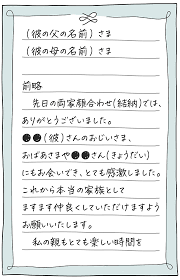 (彼の父の名前)さま
(彼の母の名前)さま
前略
先日の両家顔合わせ(結納)では、
ありがとうございました。
●●(彼)さんのおじいさま、
おばあさまや●●さん(きょうだい)
にもお会いでき、とても感激しました。
これから本当の家族として
ますます仲良くしていただけますよう
お願いいたします。
私の親もとても楽しい時間を